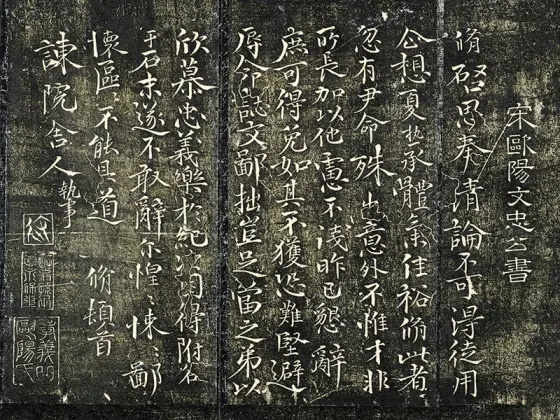 宋歐陽文忠公書
脩啓思奉清論不可得徒用
企想夏热承體氣佳裕脩此者
忽有尹命殊出意外不惟才非
所長加以他慮不浅昨已懇辭
庶可得免如其不獲恐難堅避
辱命誌文鄙拙豈足當之第以
欣慕忠義樂於紀次因得附名
于石末遂不敢辭尔惶悚鄙
懷區不能具道 脩頓首
諫院舍人 執事